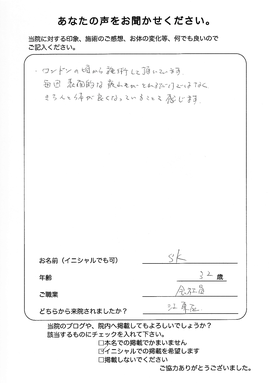 あなたの声をお聞かせください。
当院に対する印象、施術のご感想、お体の変化等、何でも良いので
ご記入ください。
・ロンドンの頃から施術して頂いています。
毎回 表面的な痛みがとれるだけではなく
きちんと体が良くなっていることを感じます。
お名前(イニシャルでも可) SK
年齢 32 歳
ご職業 会社員
どちらから来院されましたか?
当院のブログや、院内へ掲載してもよろしいでしょうか?
該当するものにチェックを入れて下さい。
□本名での掲載でかまいません
☑イニシャルでの掲載を希望します
□掲載しないでください
ご協力ありがとうございました。